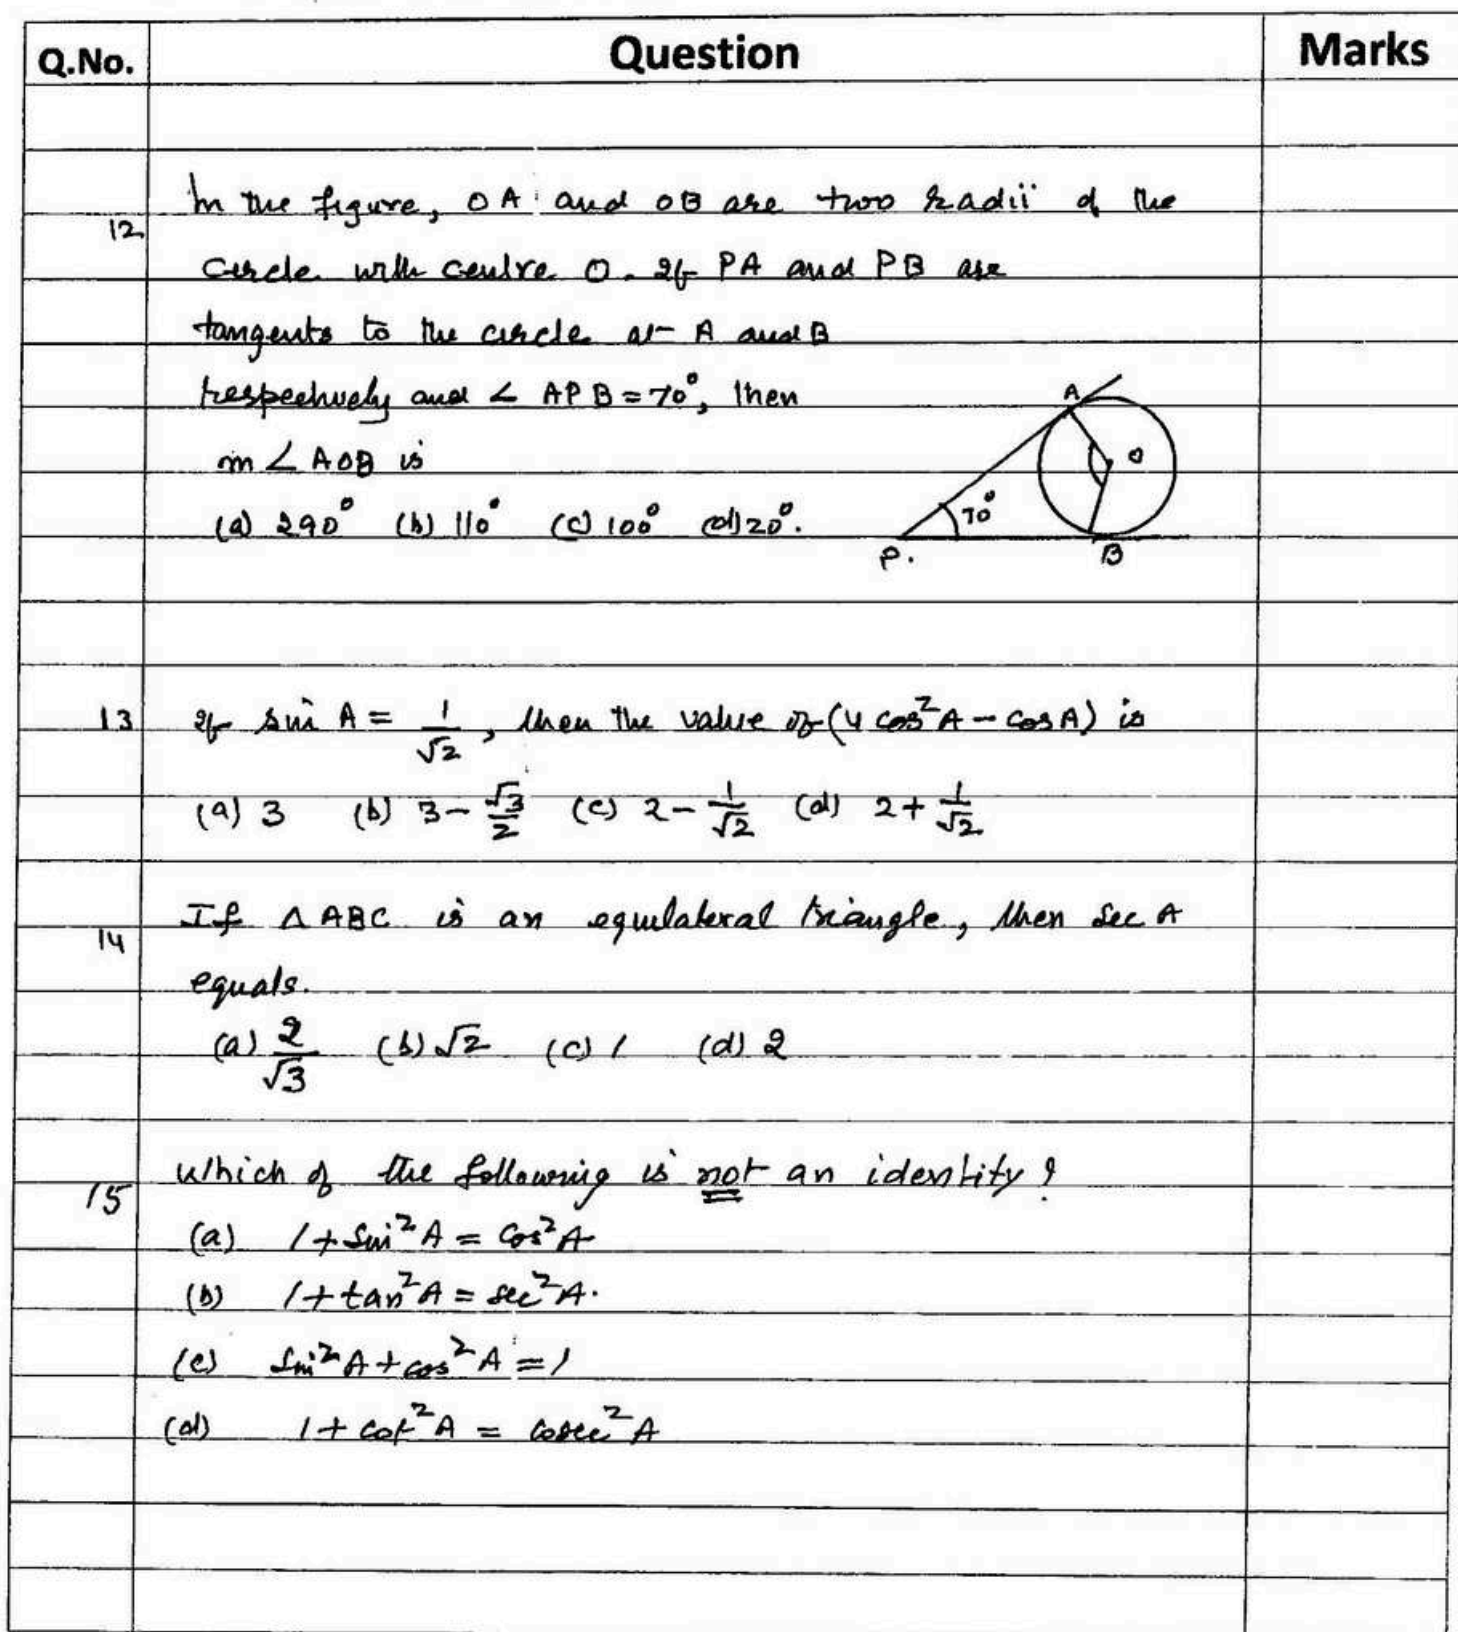 Q.No. Question Marks
12 In the figure, OA and OB are two radii of the
circle with centre O. If PA and PB are
tangents to the circle at A and B
respectively and ∠ APB = 70°, then
m ∠ AOB is
(a) 290° (b) 110° (c) 100° (d) 20°.
A
O
70°
P.
B
13 If sin A = 1/√2, then the value of (4 cos²A - cos A) is
(a) 3 (b) 3 - √3/2 (c) 2 - 1/√2 (d) 2 + 1/√2
14 If △ ABC is an equilateral triangle, then sec A
equals.
(a) 2/√3 (b) √2 (c) 1 (d) 2
15 which of the following is not an identity?
(a) 1 + sin²A = cos²A
(b) 1 + tan²A = sec²A.
(c) sin²A + cos²A = 1
(d) 1 + cot²A = cosec²A